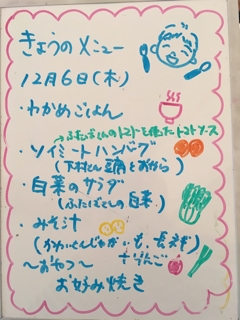 きょうのメニュー
12月6日(木)
・わかめごはん
→ふたばくんのトマトを使ったトマトソース
・ソイミートハンバーグ
(下村さん 豆腐とおから)
・白菜のサラダ
(ふたばくんの白菜)
・みそ汁
(かわいくんじゃがいも、長ネギ)
〜おやつ〜 +りんご
お好み焼き